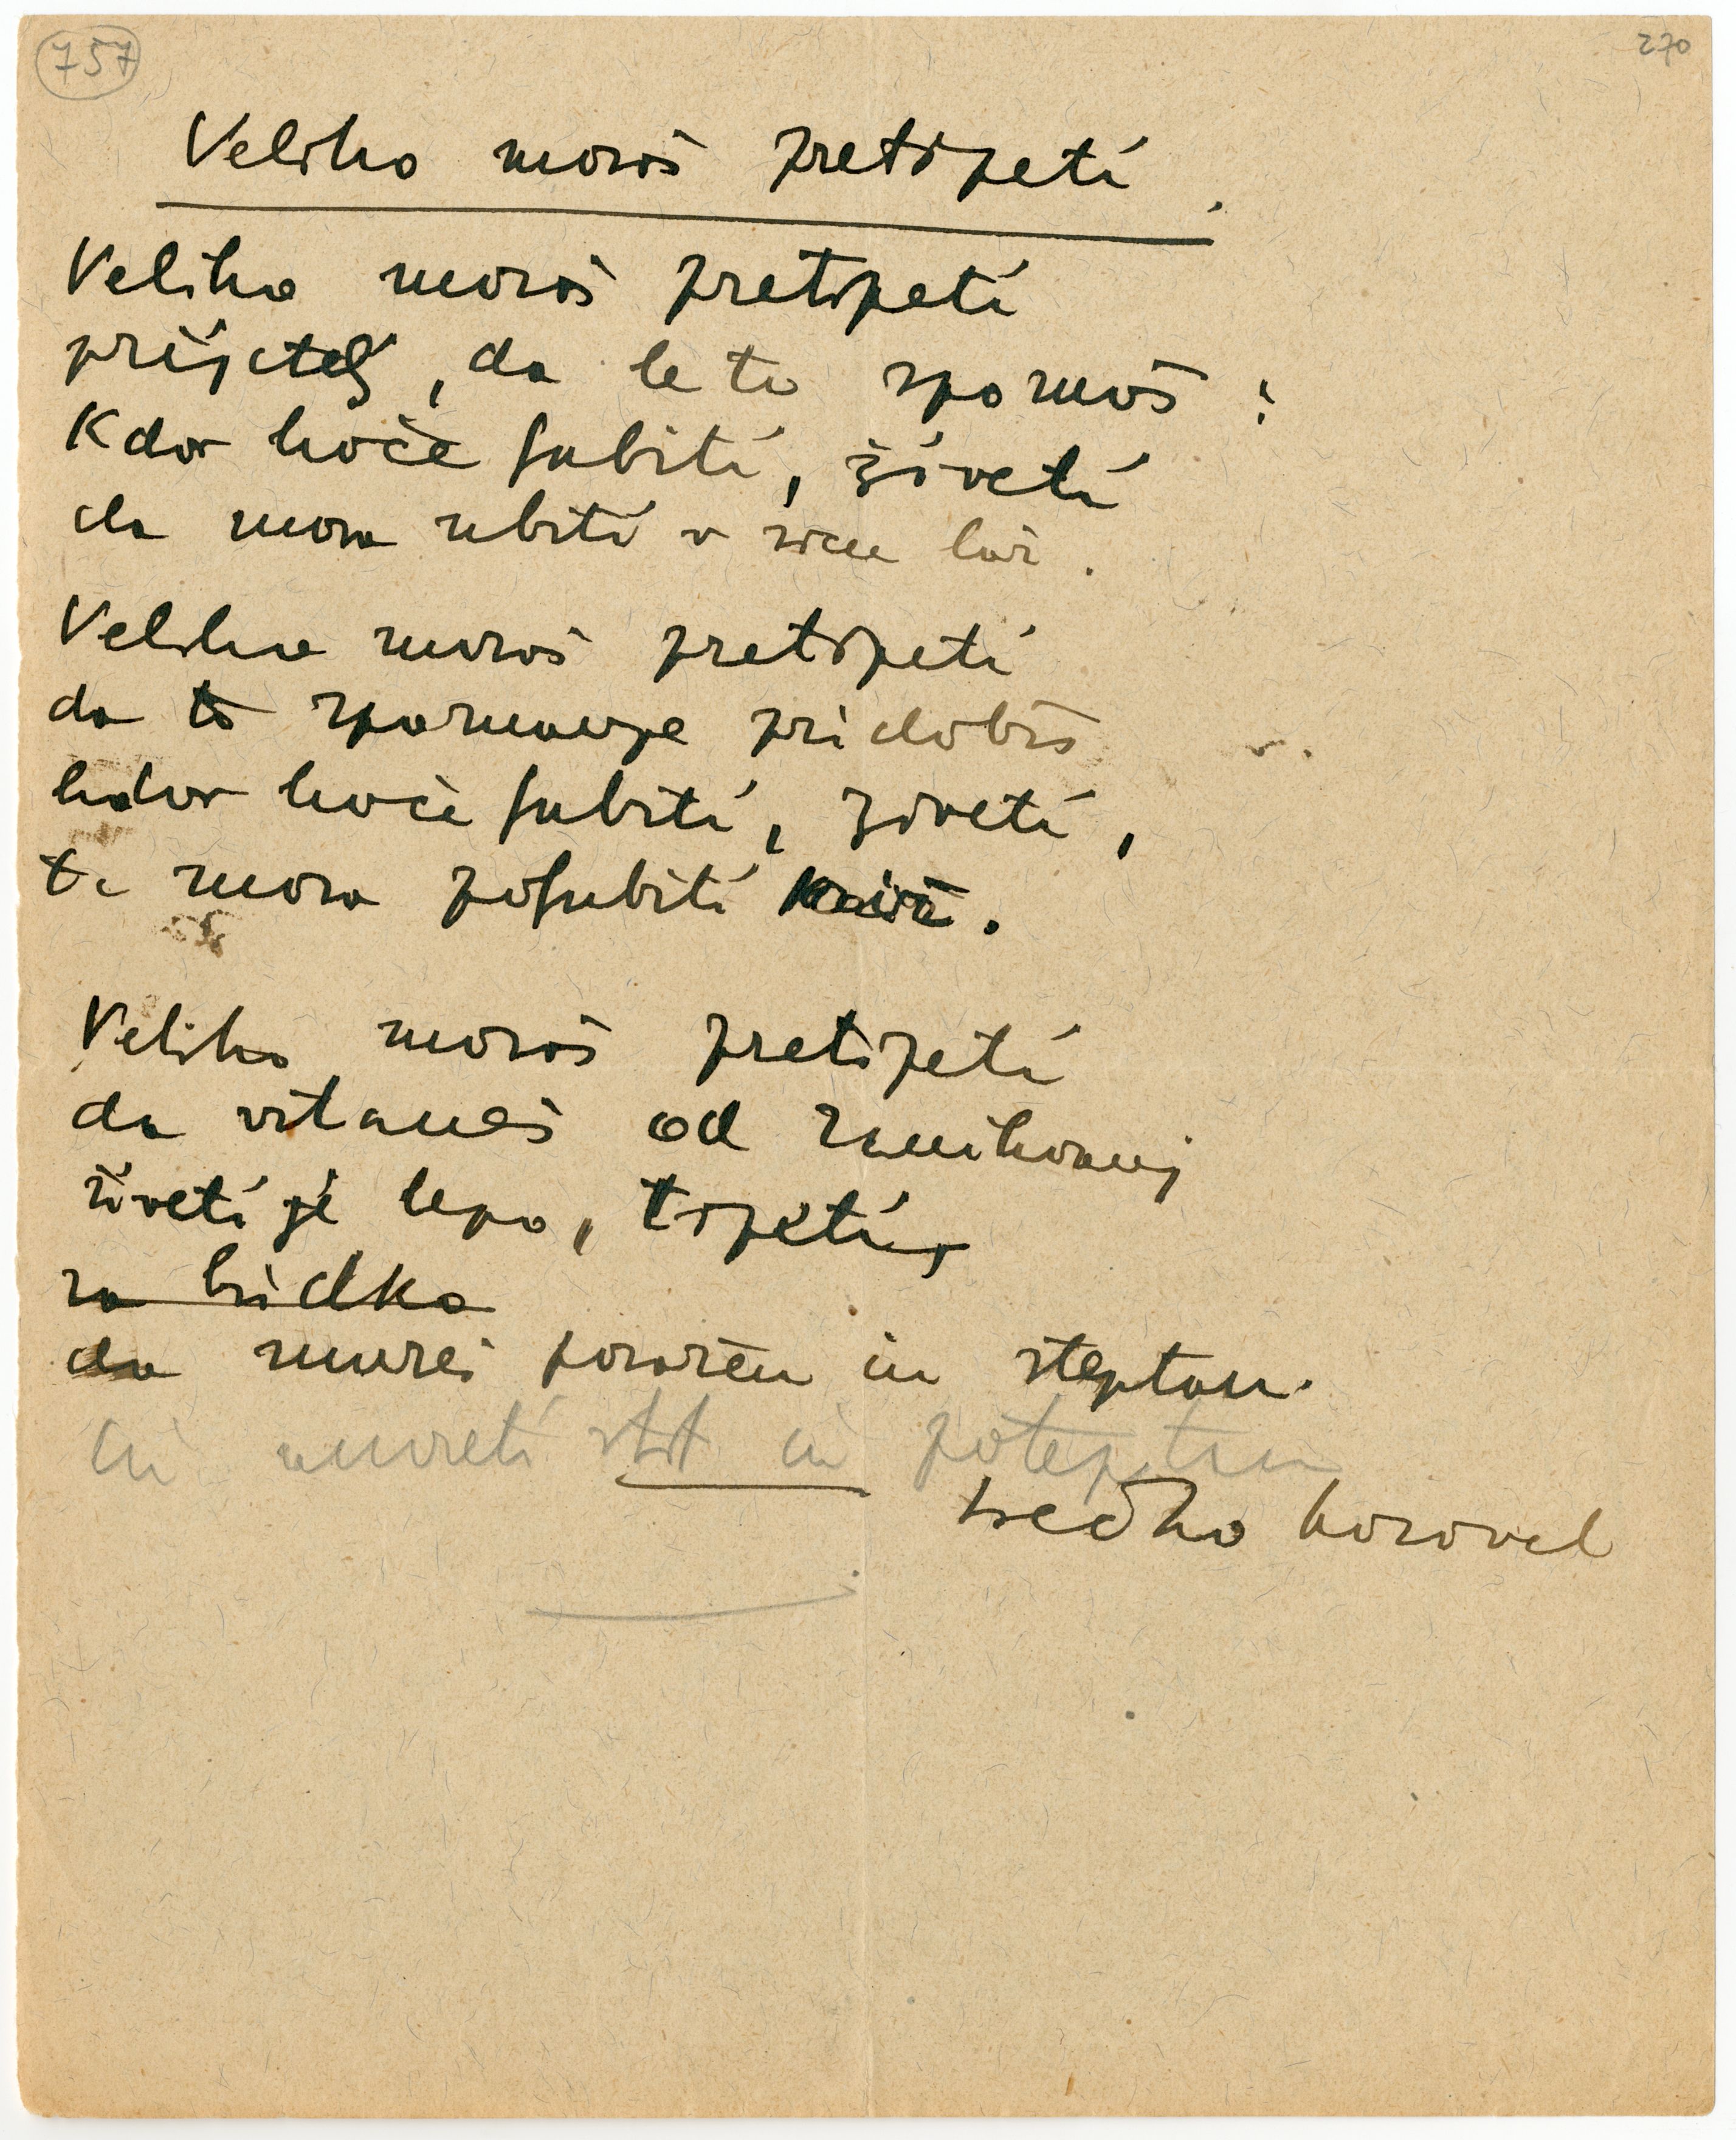 757
270
Veliko moraš pretrpeti.
Veliko moraš pretrpeti
prijatelj, da le to spoznaš:
Kdor hoče ljubiti, živeti
da mora ubiti v srcu laž.
Veliko moraš pretrpeti
da to spoznanje pridobiš
kdor hoče ljubiti, živeti,
ta mora poljubiti križ.
Veliko moraš pretrpeti
da vstaneš od
živeti je lepo, trpeti,
za bridko
da umreš poražen in steptan.
in umreti in poteptan
Srečko Kosovel